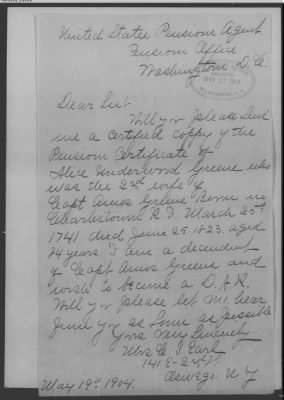 United States Pensions Agent
Pensions Office
Washington D.C.
MAY 21 1904
Dear Sir:
Will you please send
me a certified coppy of the
Pensions Certificate of
Alice Underwood Greene who
was the 2nd wife of
Capt Amos Greene Born in
Charlestown R.I. March 25th
1741 died June 25 1823 aged
84 years I am a decendent
of Capt Amos Greene and
wish to become a D.A.R.
Will you please let me hear
from you as soon as possible
Yours Very Sincerely
Mrs C. I Earl
141 E- 2nd St
Oswego. N.Y
May 19th 1904.